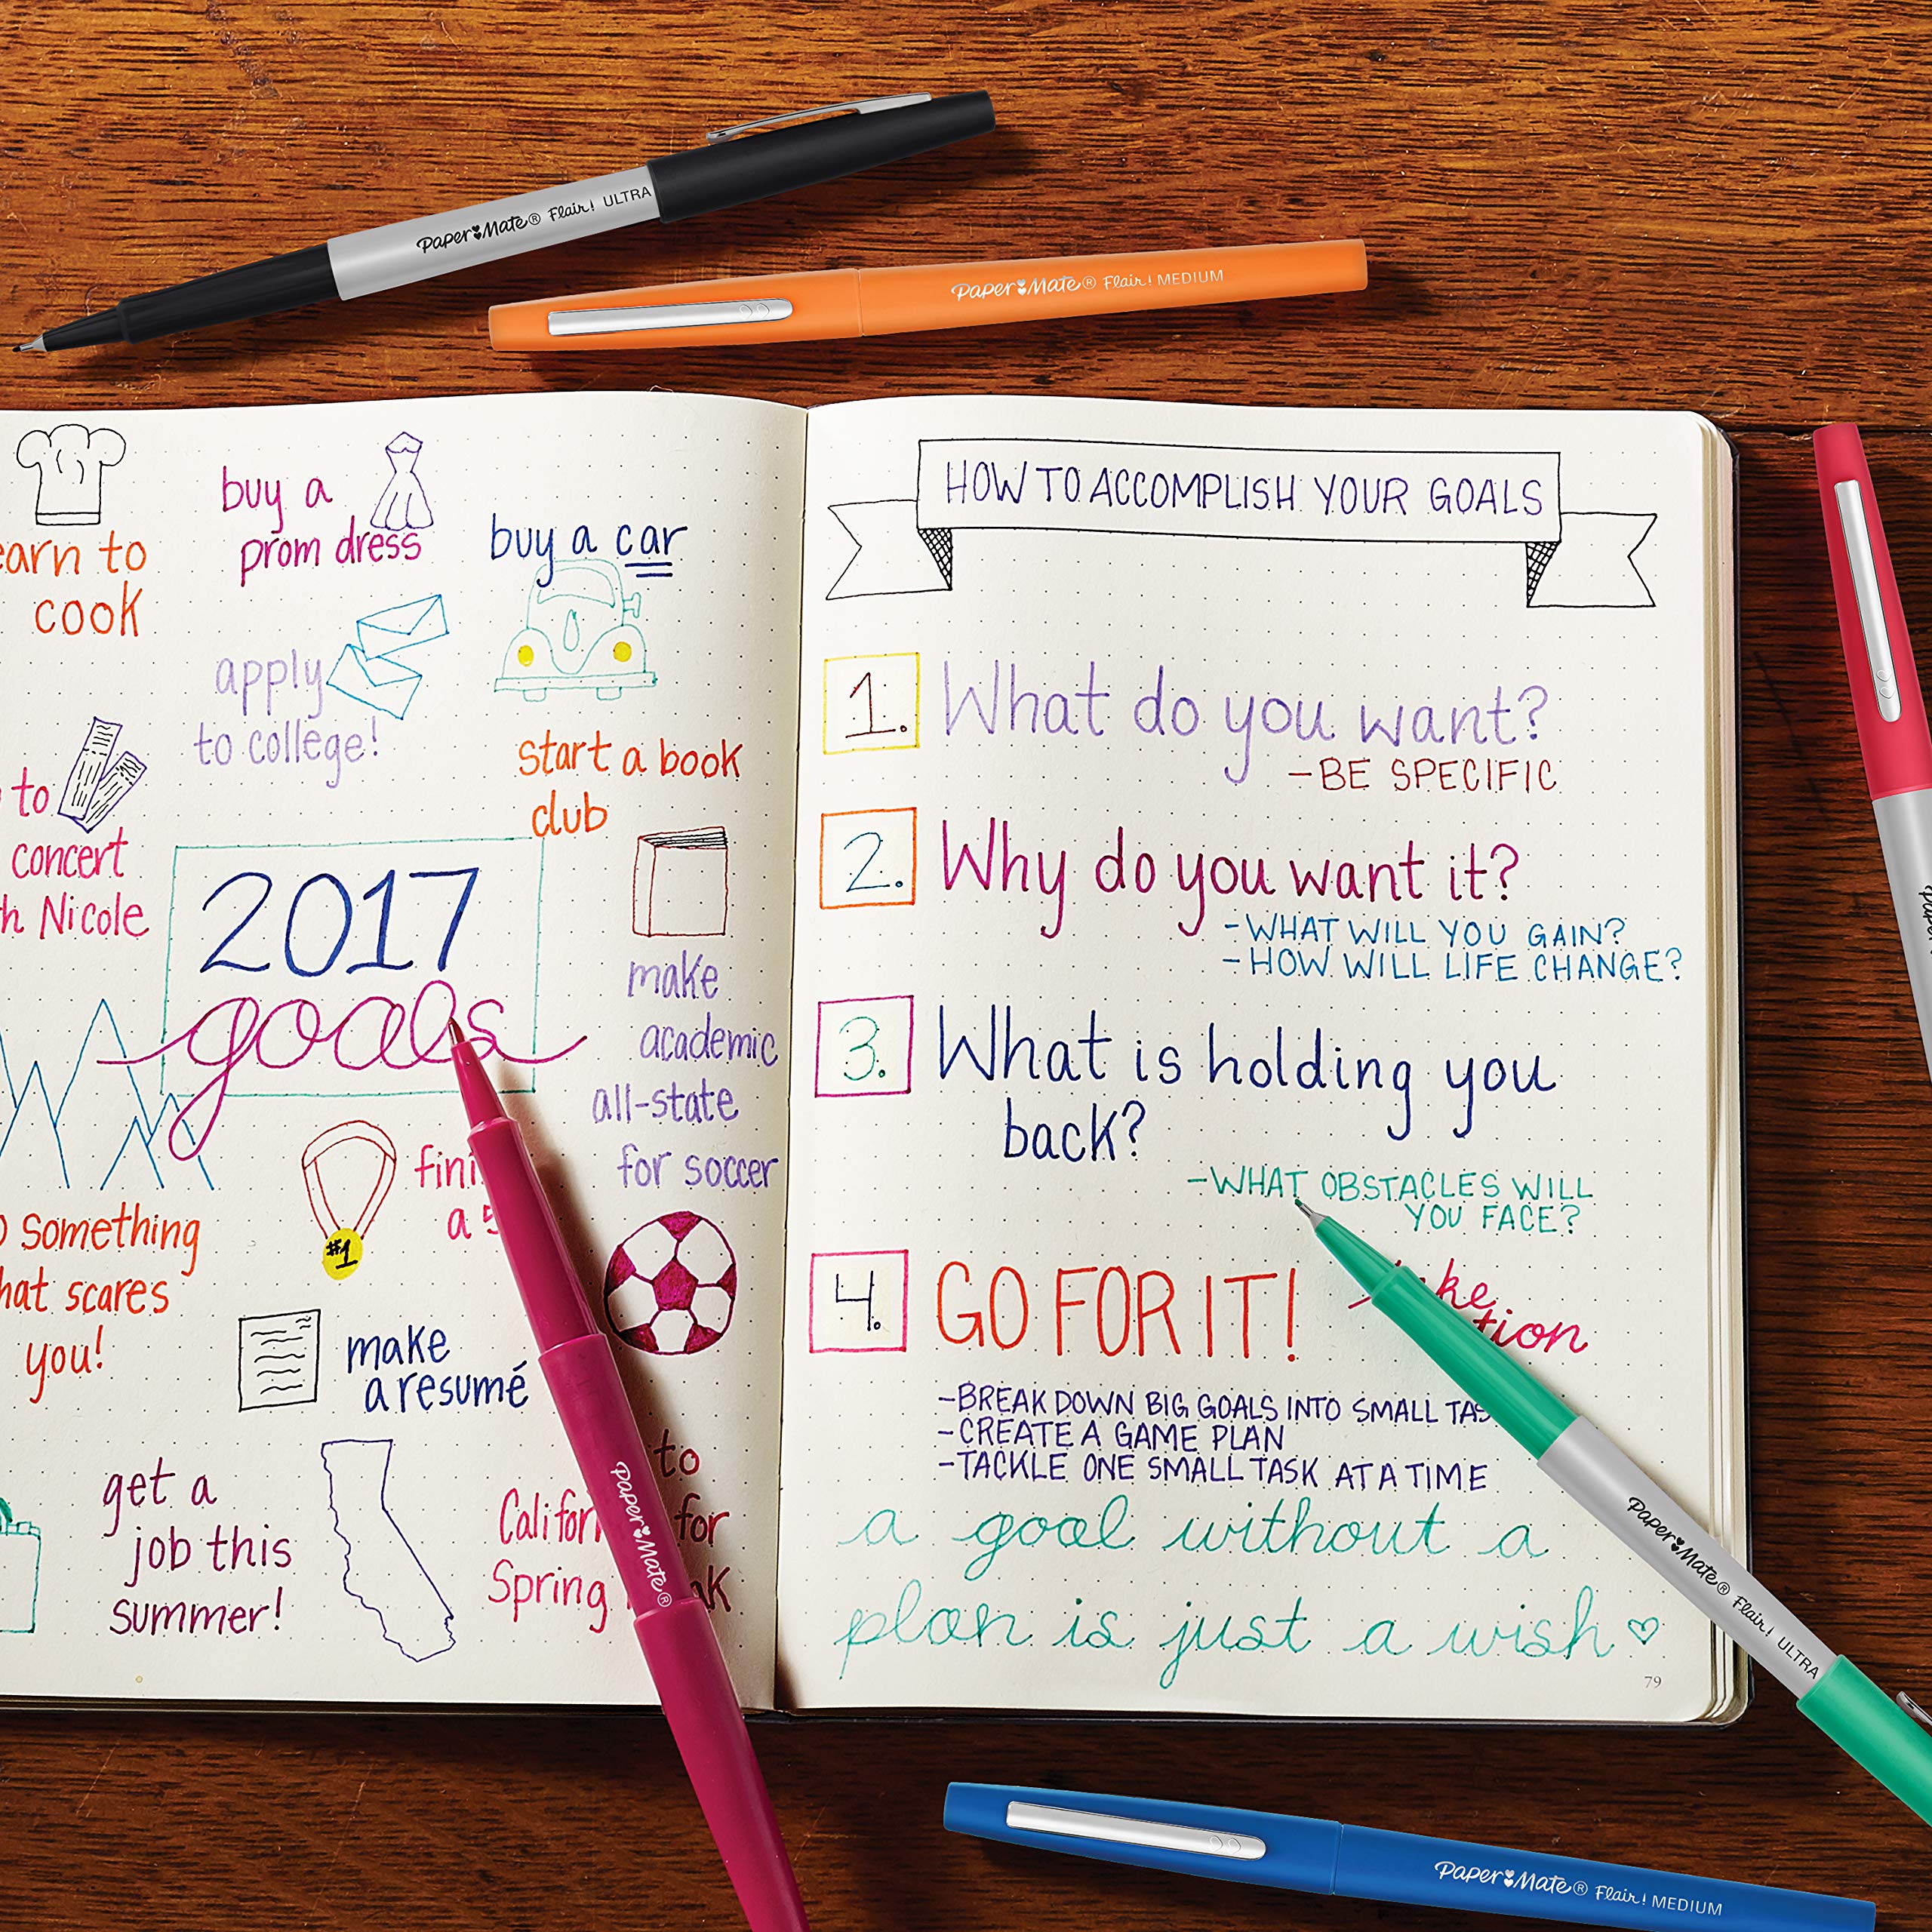 Paper Mate® Flair! ULTRA
Paper Mate® Flair! MEDIUM
cook
buy a
prom dress
buy a car
apply
to college!
start a book
club
to
concert
Nicole
2017
goals
make
academic
all-state
for soccer
a
#1
something
scares
you!
make
a resumé
get a
job this
summer!
to
for
Spring
Paper Mate®
HOW TO ACCOMPLISH YOUR GOALS
1. What do you want?
-BE SPECIFIC
2. Why do you want it?
-WHAT WILL YOU GAIN?
-HOW WILL LIFE CHANGE?
3. What is holding you
back?
-WHAT OBSTACLES WILL
YOU FACE?
4. GO FOR IT!
-BREAK DOWN BIG GOALS INTO SMALL
-CREATE A GAME PLAN
-TACKLE ONE SMALL TASK AT A TIME
a goal without a
plan is just a wish
79
Paper Mate® Flair! ULTRA
Paper Mate® Flair! MEDIUM